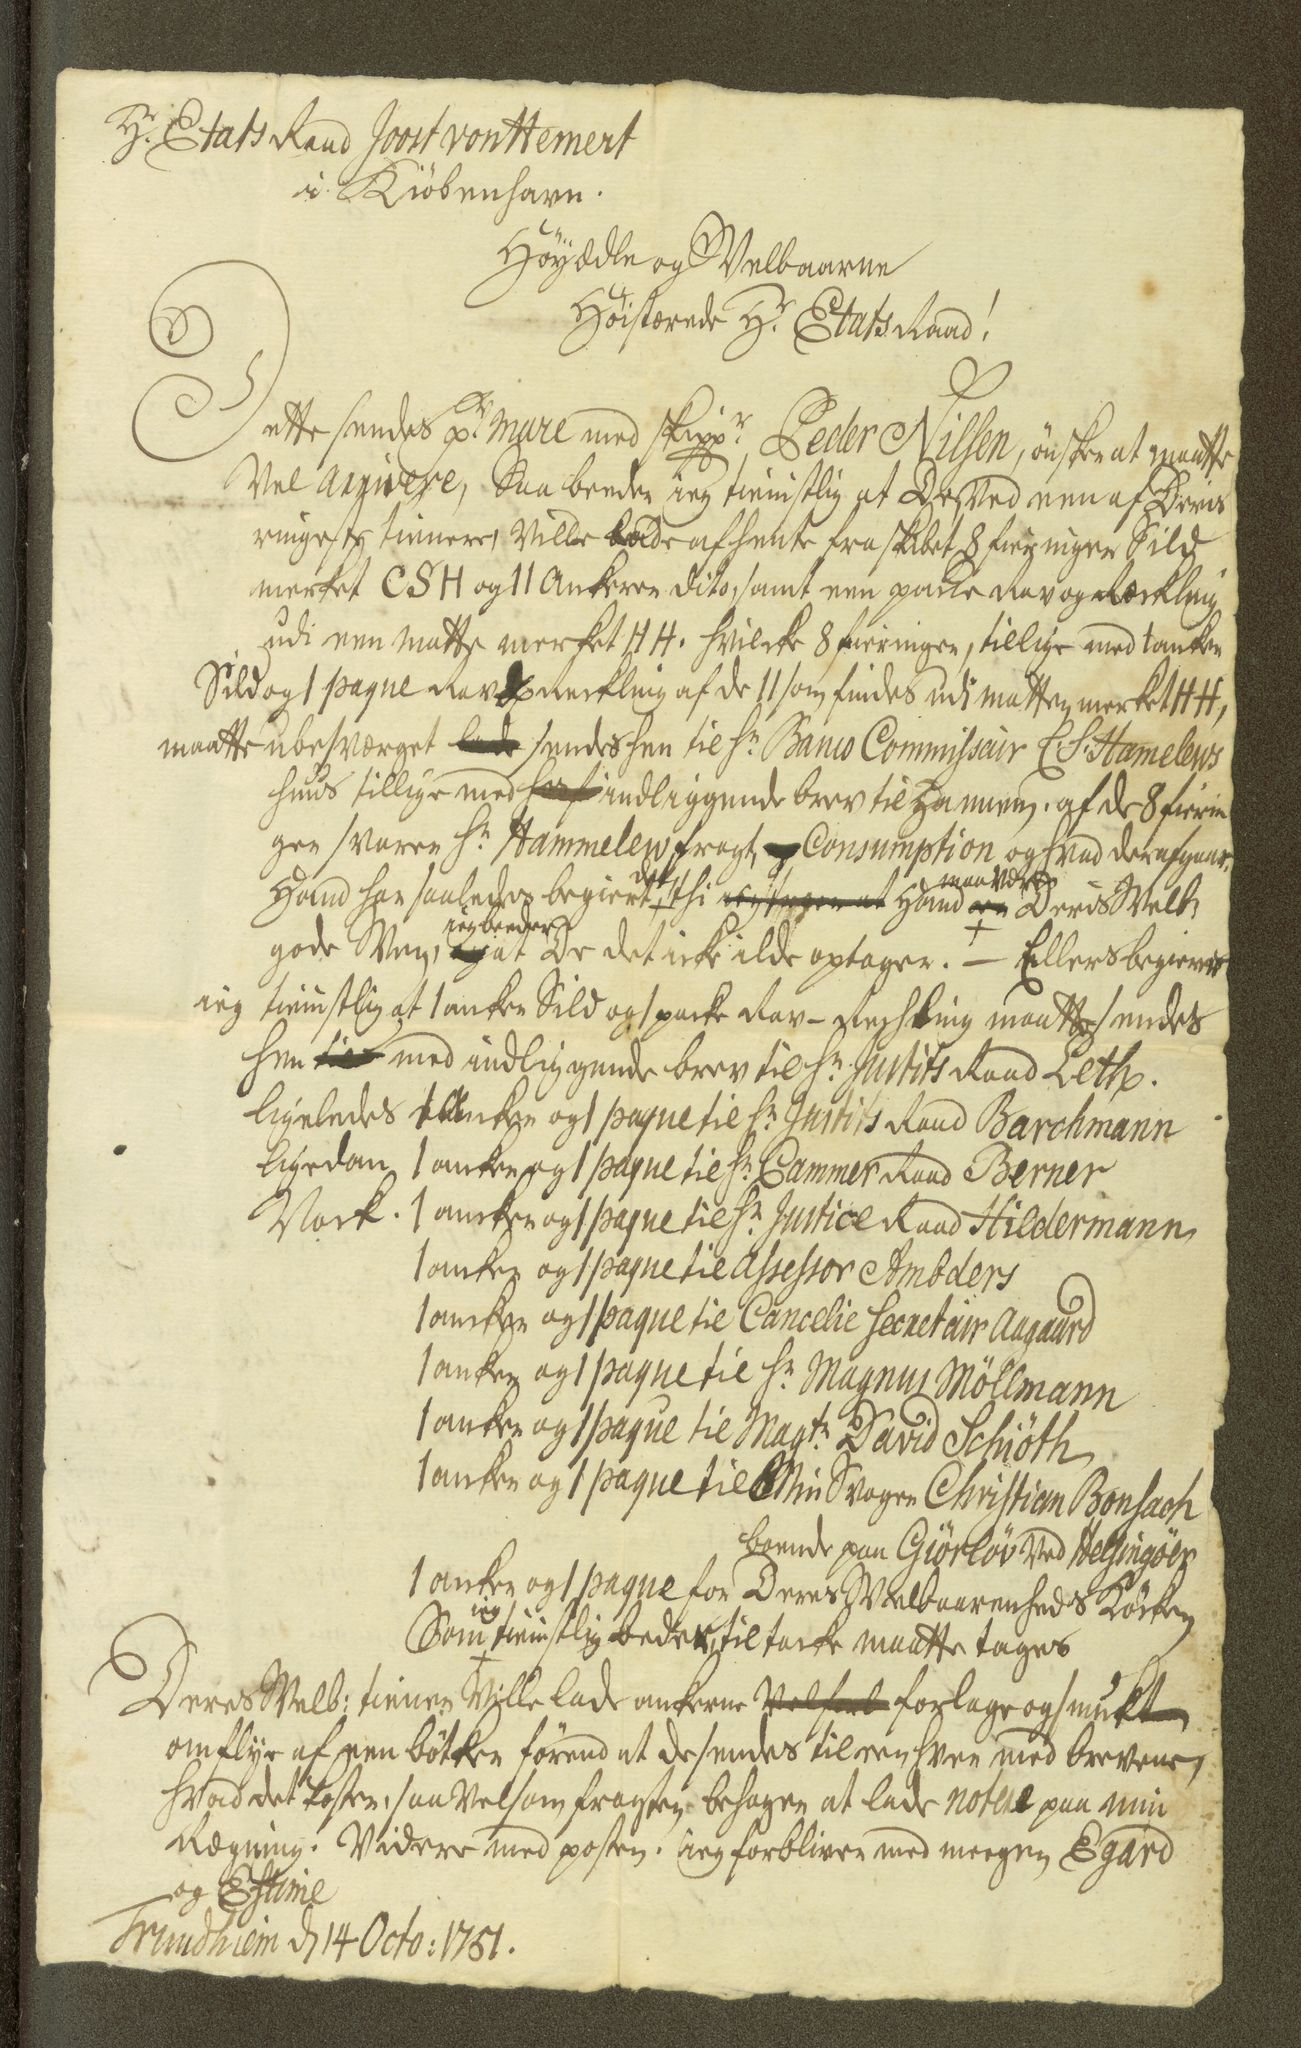 Hr. Etats Raad Joost von Hemert
i Kiöbenhavn.
Höyædle og Velbaarne
Höistærede Hr. Etats Raad!
Dette sendes pr. mare med skippr. Peder Nilssen, önsker at maatte
Vel arrivere, Saa beeder ieg tienistlig at De, Ved een af Deris
ringeste tienere, Ville lade afhente fra skibet 8 fieringer Sild
merket CSH og 11 Ankere dito, samt een packe Rav og Reckling
udi een Matte merket HH. hvilcke 8 fieringer, tillige med 1 ancker
Sild og 1 paque Rav og Reckling af de 11 som findes udi matten merket HH,
maatte ubesværget lade sendes hen til Hr. Banco Commissair C S. Hamelews
huus tillige med indliggende brev til hannem. af de 8 fierin
ger svarer Hr. Hammelew fragt, Consumption og hvad deraf gaar.
Hand har saaledes begiert det, thi Hand maa være Deris Velb.
gode Ven, ieg beeder at De det icke ilde optager. — Ellers begierer
ieg tienistlig at 1 ancker Sild og 1 packe Rav-Rechling maatte sendes
hen til med indliggende brev til Hr. Justits Raad Leth.
ligeledes 1 Ancker og 1 paque til Hr. Justits Raad Barchmann
ligedan 1 ancker og 1 paque til Hr. Cammer Raad Berner
Nock. 1 ancker og 1 paque til Hr. Justice Raad Hildermann
1 ancker og 1 paque til Assessor Ambders
1 ancker og 1 paque til Cancelie Secretair Aagaard
1 ancker og 1 paque til Hr. Magnus Möllmann
1 ancker og 1 paque til Magtr. David Schiöth
1 ancker og 1 paque til Min Svoger Christian Bonsach
boende paa Giörlöv Ved Helsingöer
1 ancker og 1 paque for Deres Velbaarenheds Köcken
Som ieg tienistlig beder, til tacke maatte tages
Deres Velb: tiener Ville lade anckerne forlage og smukt
omflye af een bötker förend at de sendes til een hver med brevene,
hvad det koster, saa Vel som fragten behager at lade notere paa min
Regning. Videre med posten. ieg forbliver med megen Egard
og Estime
Trundhiem d. 14 Octo: 1751.